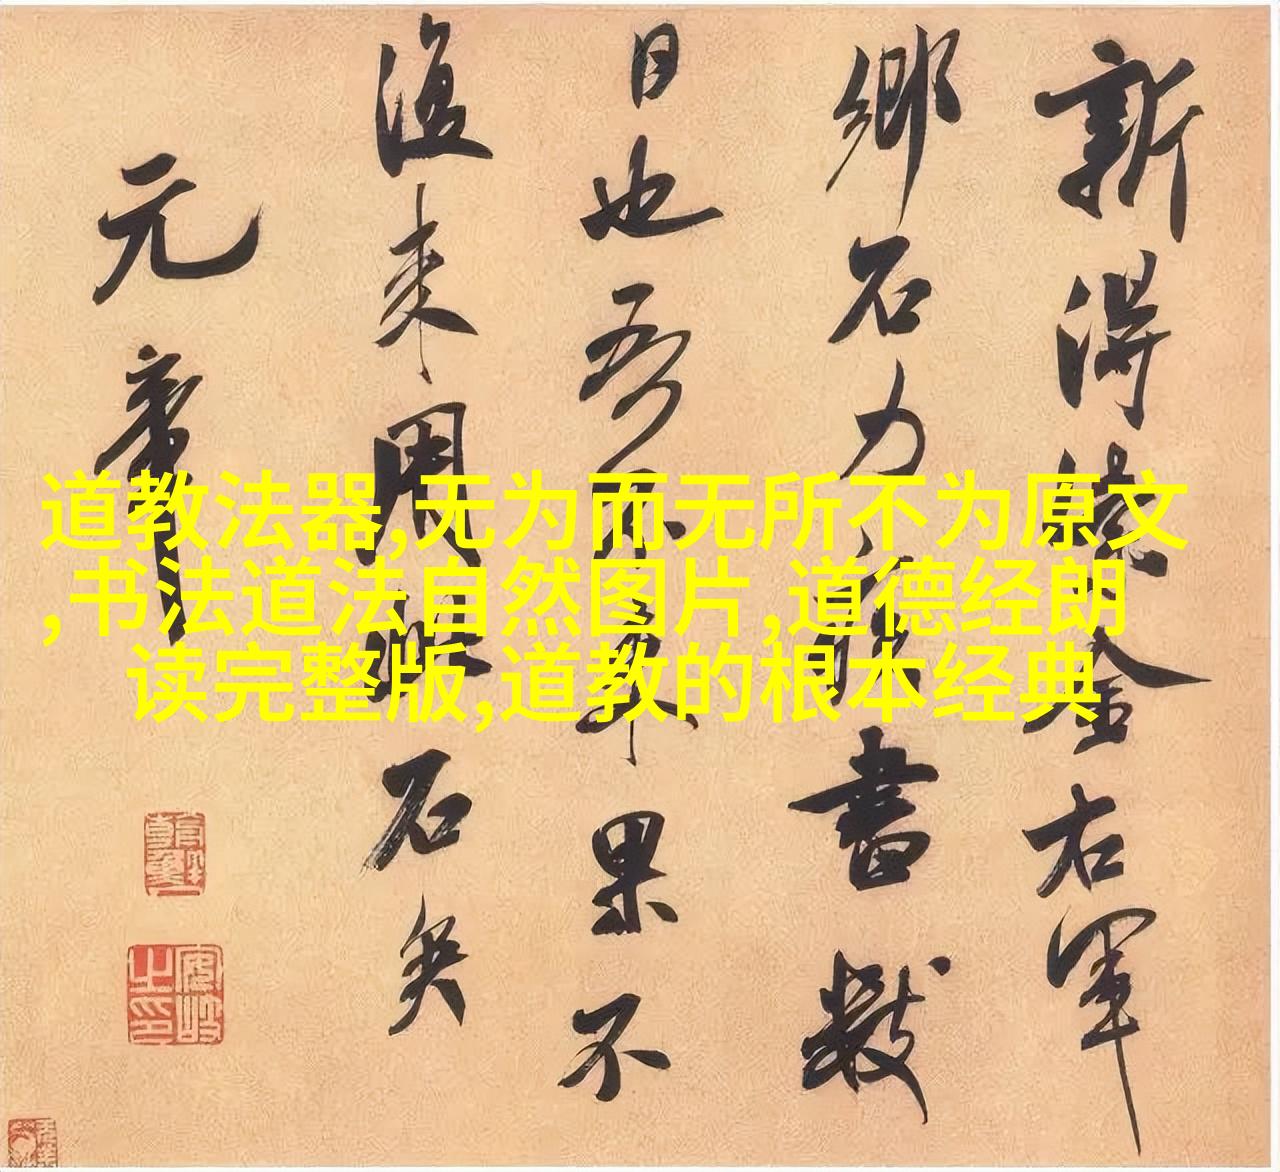 新得紫金右軍
鄉石力疾書數
日也吾不來果不
復來用此石矣
元章
道教法器,无为而无所不为原文
,书法道法自然图片,道德经朗
读完整版,道教的根本经典